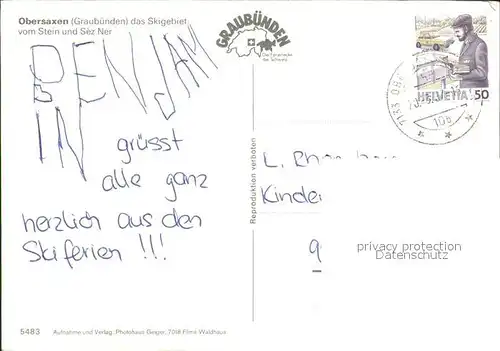 Obersaxen (Graubünden) das Skigebiet
vom Stein und Sèz Ner
BENJAM
IN
grüsst
alle ganz
herzlich aus den
Skiferien !!!
GRAUBÜNDEN
Die Ferienecke
der Schweiz
HELVETIA 50
7133
10h
Reproduktion verboten
L.
Kinder
9
privacy protection
Datenschutz
5483 Aufnahme und Verlag: Photohaus Geiger, 7018 Flims Waldhaus